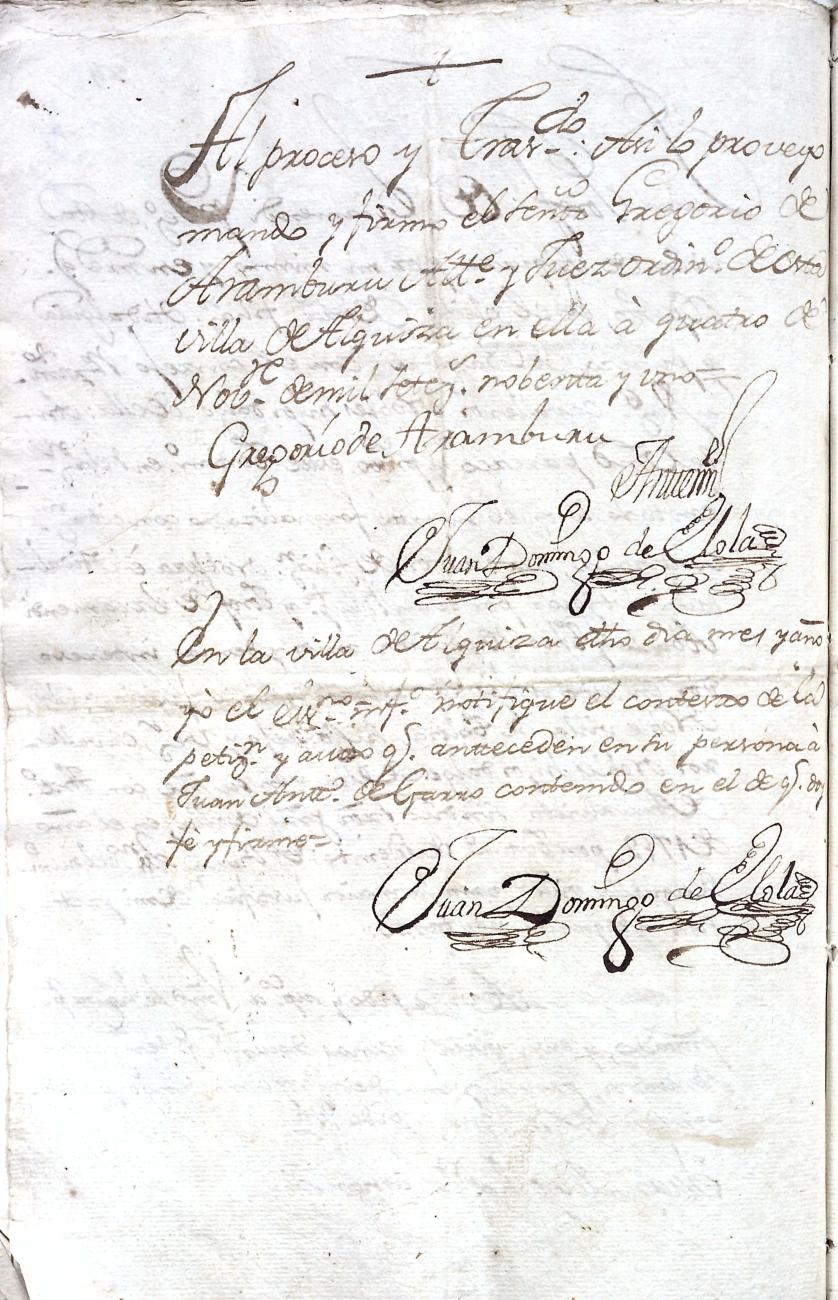 Al proceso y Trasdo: Asi lo proveyo
mando y firmo el Señor Gregorio de
Aramburu Alle y Juez ordino de esta
villa de Alquiza en ella à quatro de
Nobe de mil setezs. nobenta y uno
Gregorio de Aramburu
Antemi
Juan Domingo de Elola
En la villa de Alquiza dho dia mes y año
yo el no notifique el contexto de la
petizn y auto qe. antteceden en su persona à
Juan Antto. de Garro contenido en el de qe. doy
fe y firme
Juan Domingo de Elola